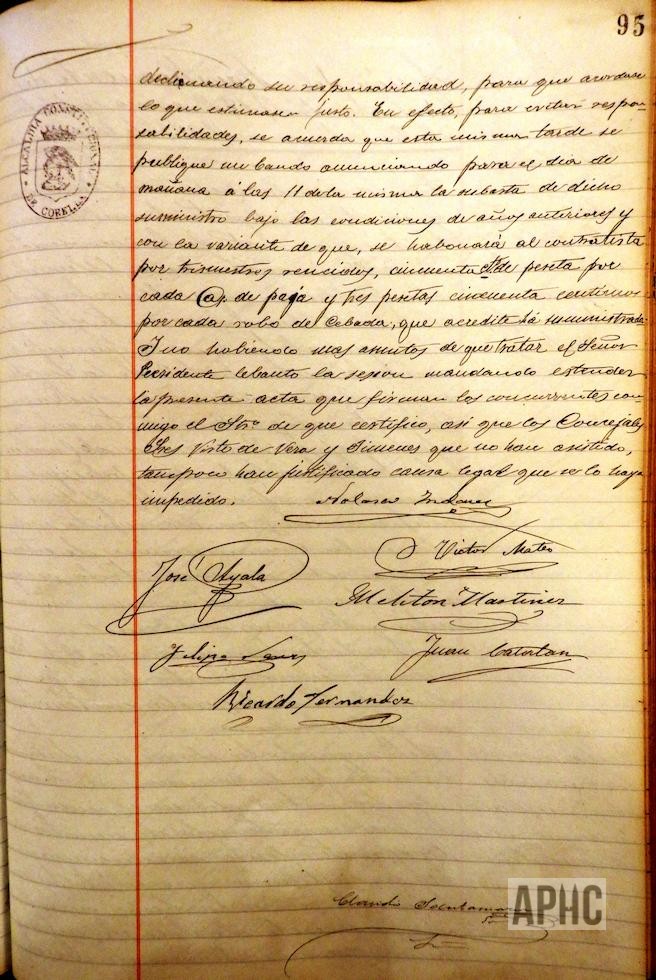 95
ALCALDIA CONSTITUCIONAL
DE CORELLA
declinando su responsabilidad, para que acordase
lo que estimasen justo. En efecto, para evitar respon-
sabilidades, se acuerda que esta misma tarde se
publique un bando anunciando para el dia de
mañana á las 11 de la misma la subasta de dicho
suministro bajo las condiciones de años anteriores y
con la variante de que, se habonará al contratista
por trimestres vencidos, cincuenta cts de peseta por
cada @ de paja y tres pesetas cincuenta centimos
por cada robo de cebada, que acredite há suministrado.
Y no habiendo mas asuntos de que tratar el Señor
Presidente lebantó la sesion mandando estender
la presente acta que firman los concurrentes con-
migo el Strio de que certifico, asi que los Concejales
Sres Virto de Vera y Gimenes que no han asistido,
tampoco han justificado causa legal que se lo haya
impedido.
Victor Mateo
José Ayala
Meliton Martinez
Felipe
Juan Catalan
Ricardo Fernandez
Claudio Santamaria
APHC